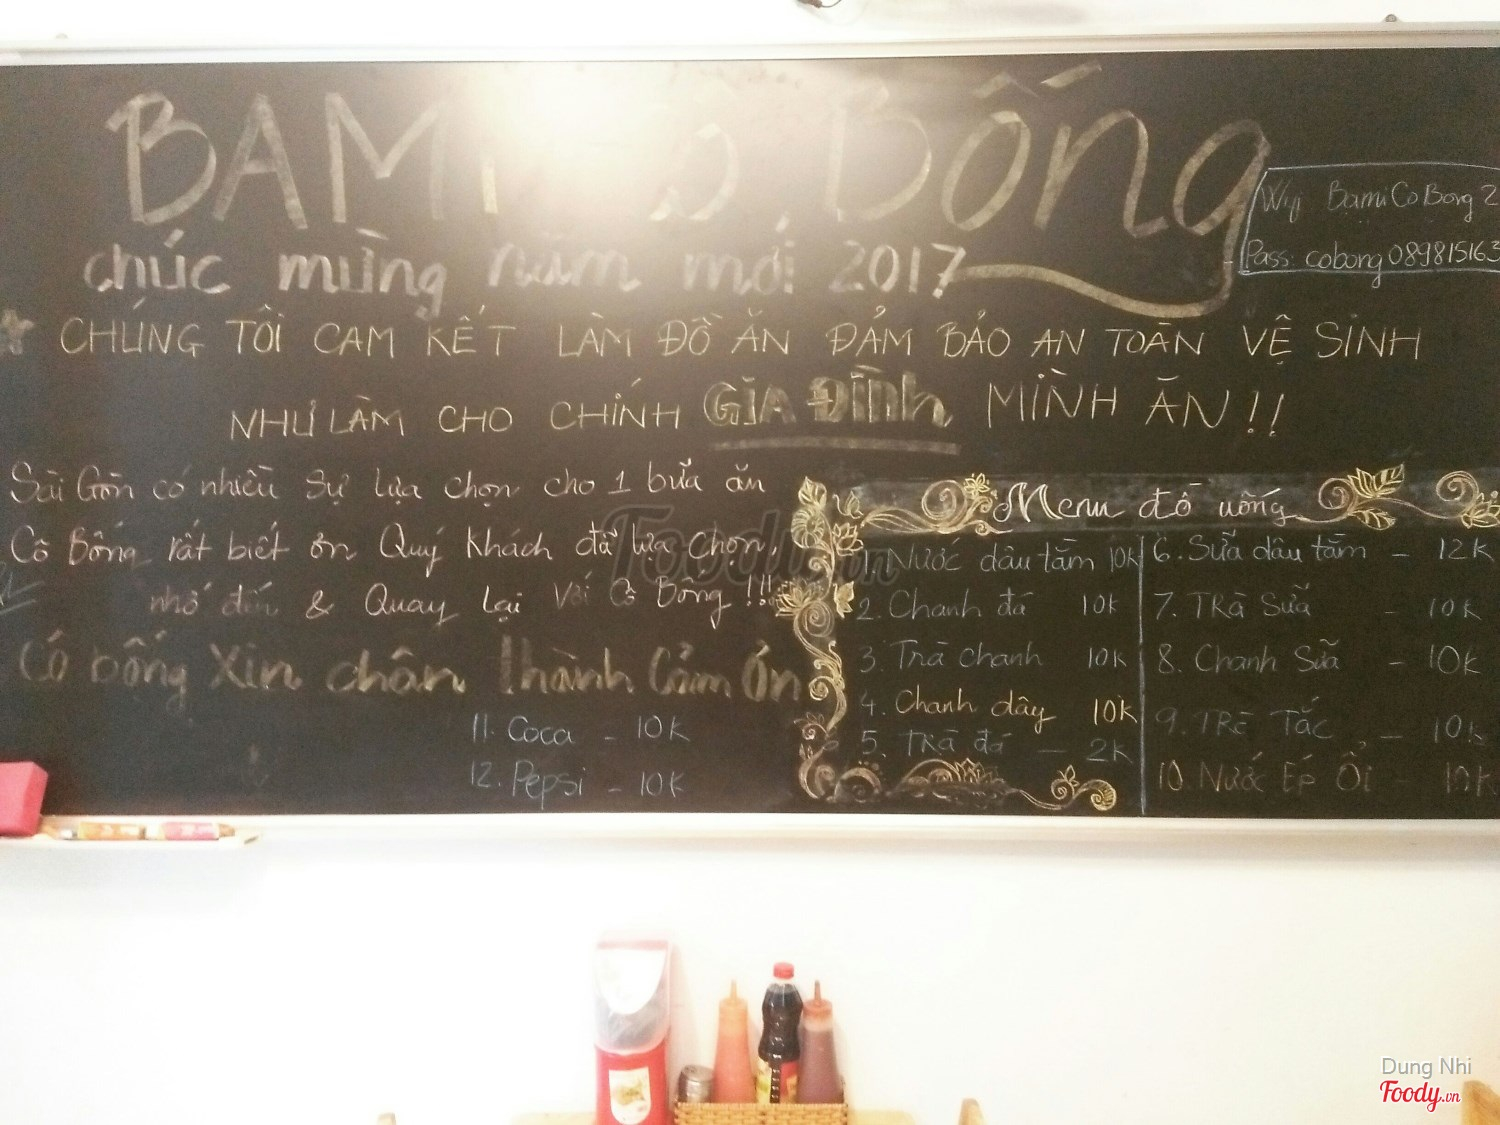 BAMI Cô Bống
Wifi BamiCoBong 2
Pass: cobong089815163
chúc mừng năm mới 2017
CHÚNG TÔI CAM KẾT LÀM ĐỒ ĂN ĐẢM BẢO AN TOÀN VỆ SINH
NHƯ LÀM CHO CHÍNH GIA ĐÌNH MÌNH ĂN!!
Sài Gòn có nhiều sự lựa chọn cho 1 bữa ăn
Cô Bống rất biết ơn Quý khách đã lựa chọn,
nhớ đến & Quay lại với Cô Bống!!!
Cô bống xin chân thành cảm ơn
Menu đồ uống
1. Nước dâu tằm 10k
2. Chanh đá 10k
3. Trà chanh 10k
4. Chanh dây 10k
5. Trà đá - 2k
6. Sữa dâu tằm - 12k
7. Trà Sữa - 10k
8. Chanh Sữa - 10k
9. Trà Tắc - 10k
10. Nước Ép Ổi - 10k
11. Coca - 10k
12. Pepsi - 10k
Foody.vn
Dung Nhi
Foody.vn